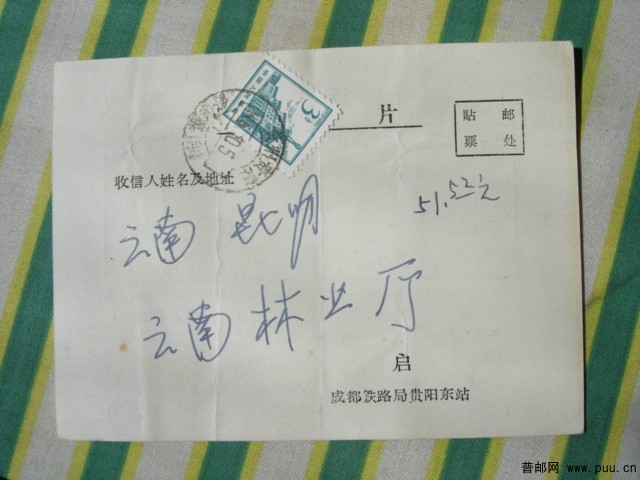 片
贴 邮
票 处
3
收信人姓名及地址
51.52元
云南 昆明
云南 林业 厅
启
成都铁路局贵阳东站
普邮网 www.puu.cn